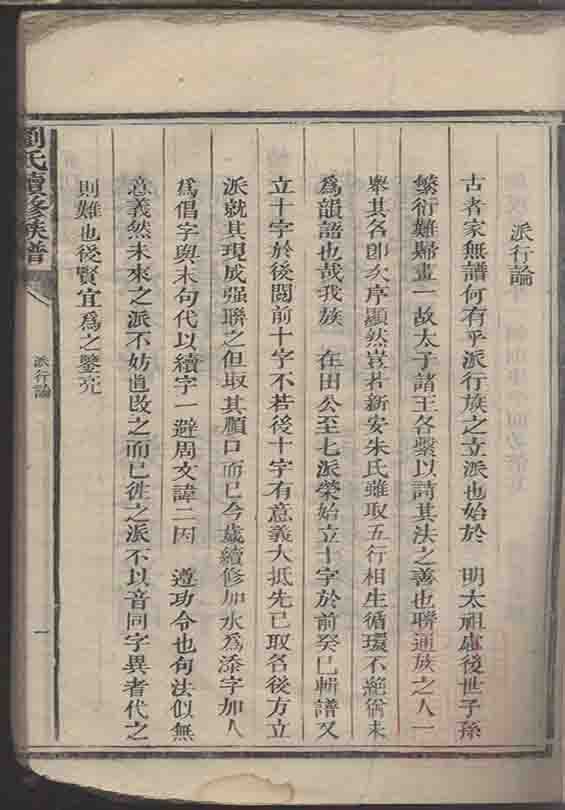 派行論
古者家無譜何有乎派行族之立派也始於 明太祖慮後世子孫
繁衍難歸畫一故太子諸王各繫以詩其法之善也聯通族之人一
舉其名卽次序顯然豈若新安朱氏雖取五行相生循環不絕猶未
爲韻語也哉我族 在田公至七派榮始立十字於前癸巳輯譜又
立十字於後閱前十字不若後十字有意義大抵先已取名後方立
派就其現成强聯之但取其順口而已今歲續修加水爲添字加人
爲倡字與末句代以續字一避周文諱二因 遵功令也句法似無
意義然未來之派不妨直改之而已徃之派不以音同字異者代之
則難也後賢宜爲之鑒亮
劉氏續修族譜
派行論
一